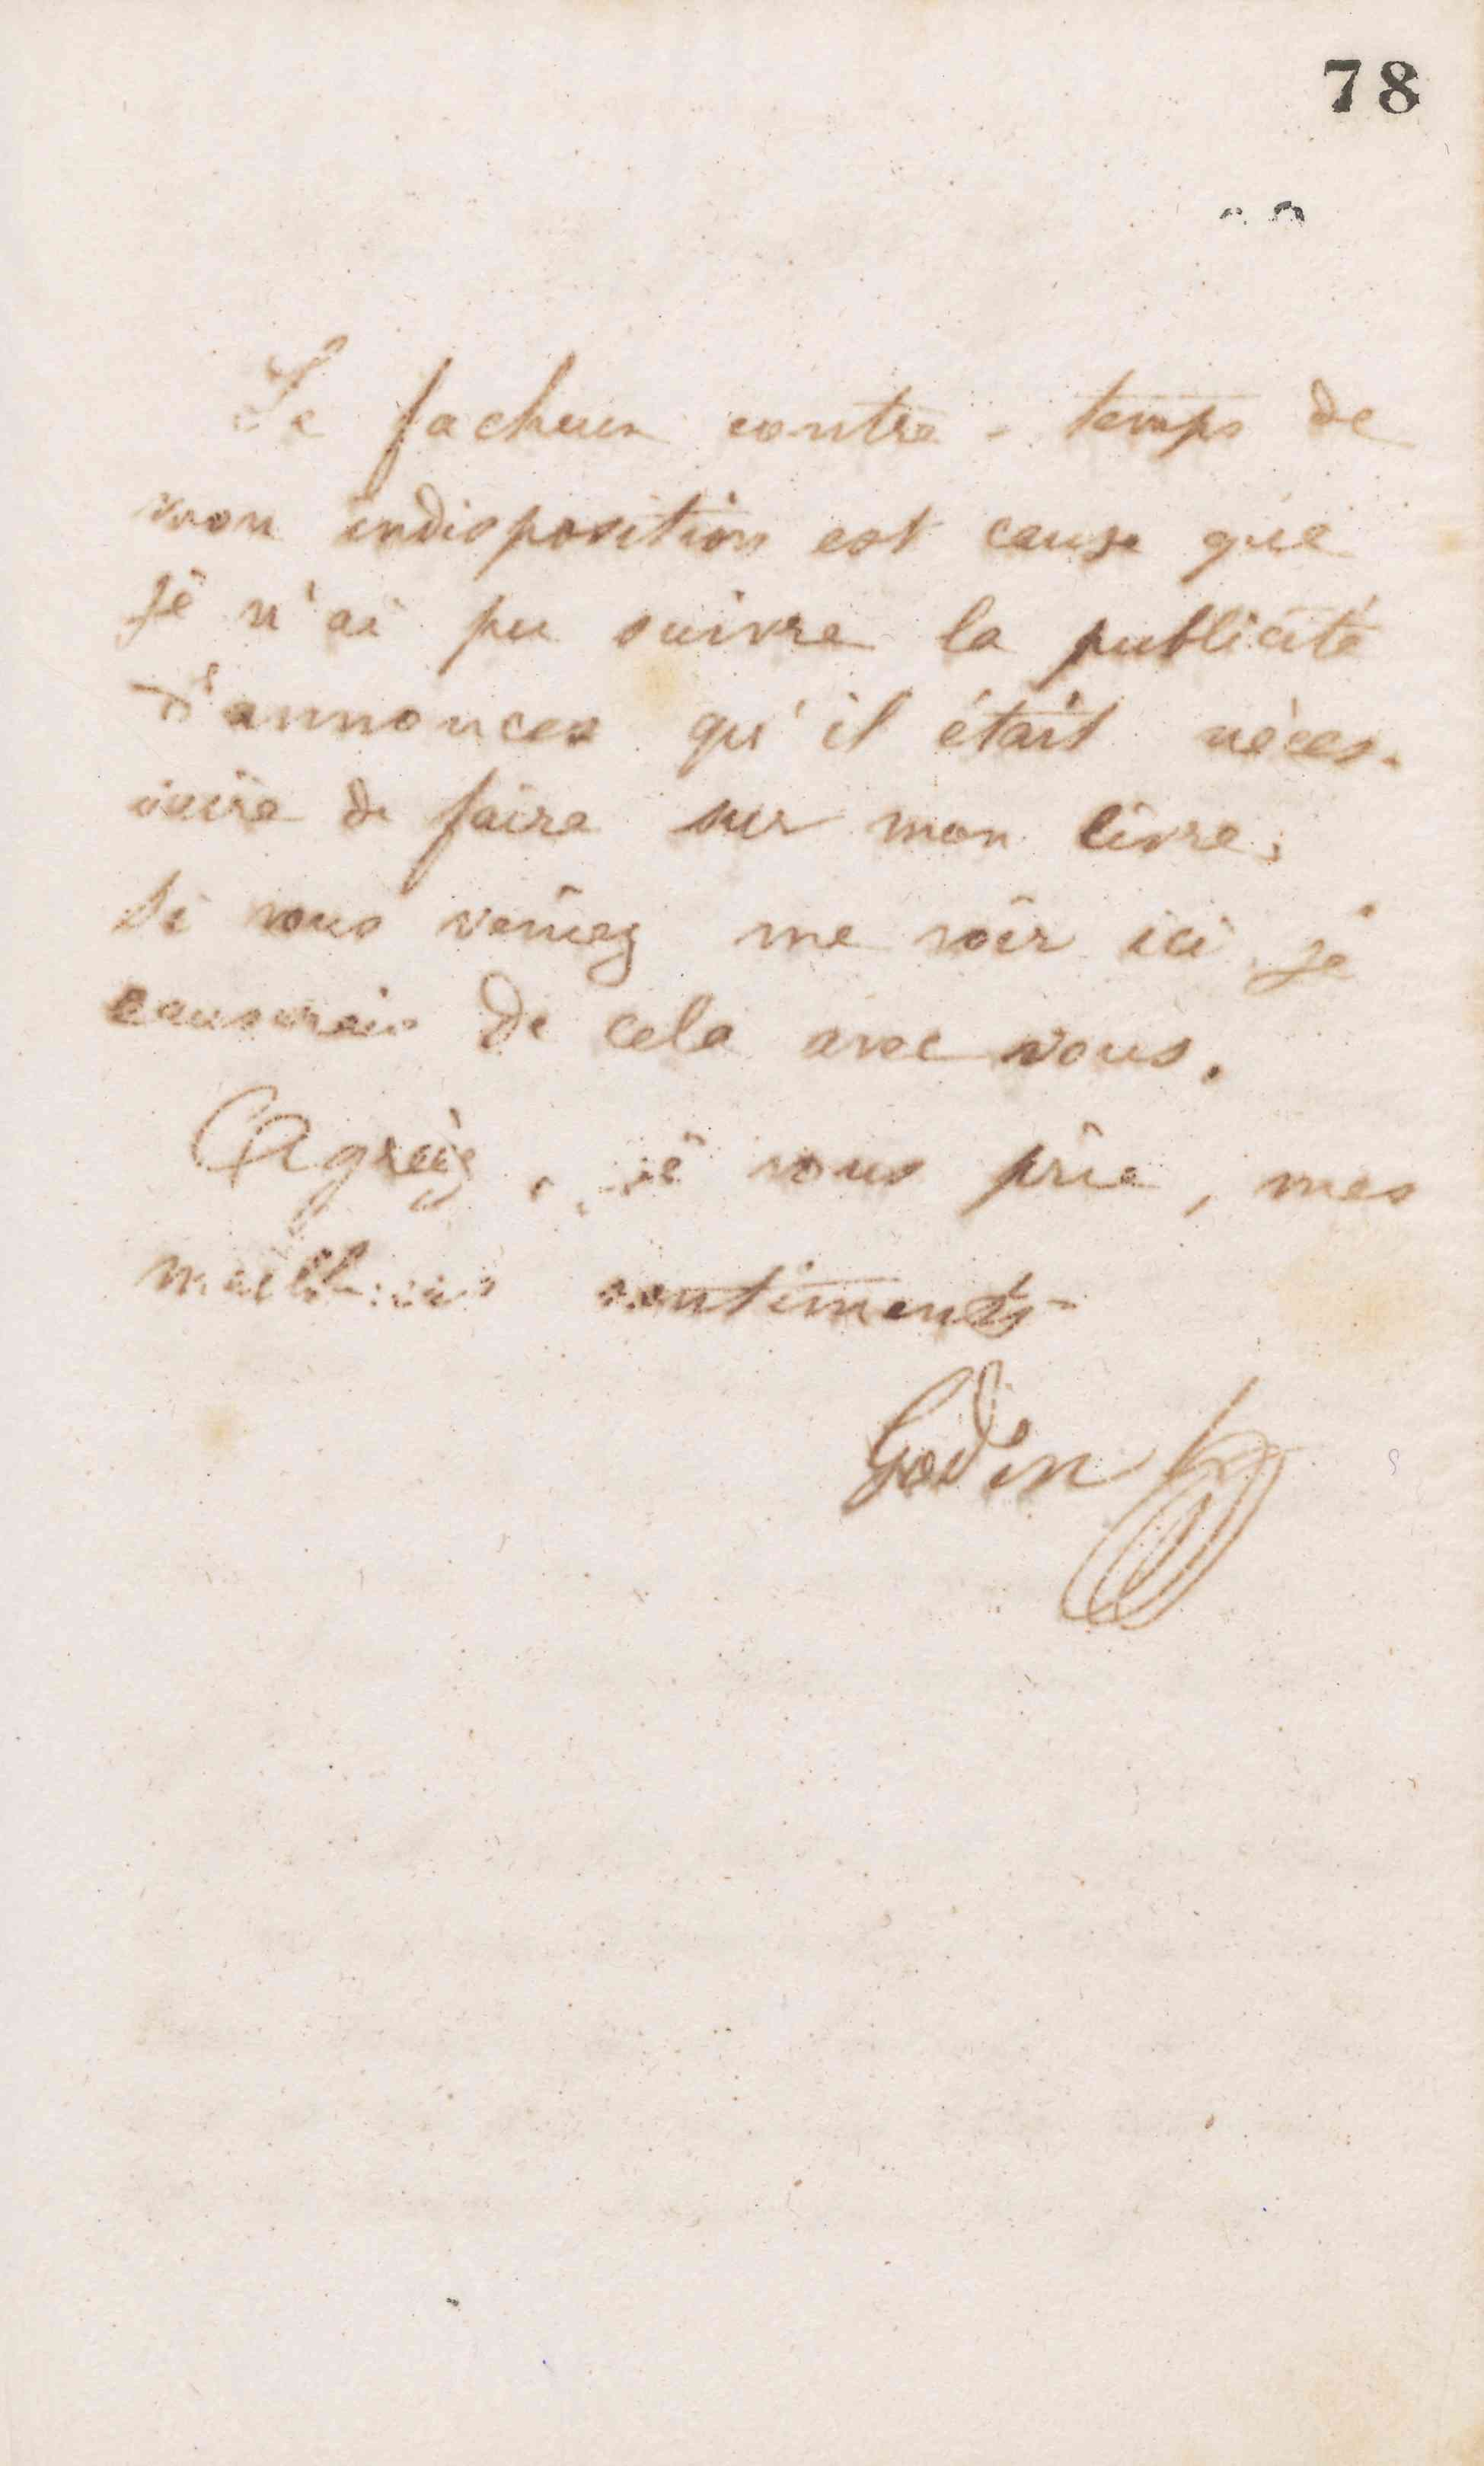 78
Le facheux contre-temps de
mon indisposition est cause que
je n'ai pu suivre la publicité
d'annonces qu'il était néces-
saire de faire sur mon livre.
Si vous veniez me voir ici, je
causerais de cela avec vous.
Agréez, je vous prie, mes
meilleurs sentiments
Godin